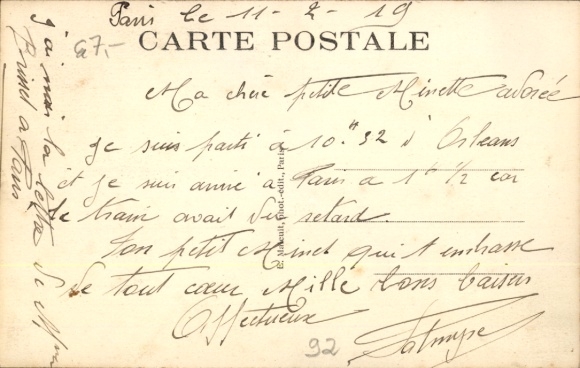 Paris le 11-2-19
67,-
CARTE POSTALE
Ma chère petite Minette adorée
Je suis parti à 10.H 32 d'Orleans
et je suis arrivé à Paris a 1h 1/2 car
le train avait du retard.
Ton petit Minet qui t'embrasse
de tout cœur Mille bons baisers
Affectueux
92
j'ai mis la lettre de
à Paris
phot.-édit., Paris